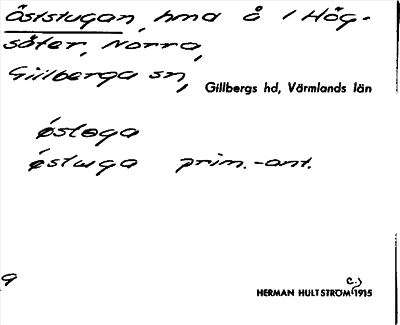 Öststugan, hmd å 1 Hög-
säter, Norra,
Gillberga sn,
Gillbergs hd, Värmlands län
østøga
østωga prim.-ant.
9
c.)
HERMAN HULTSTRÖM 1915